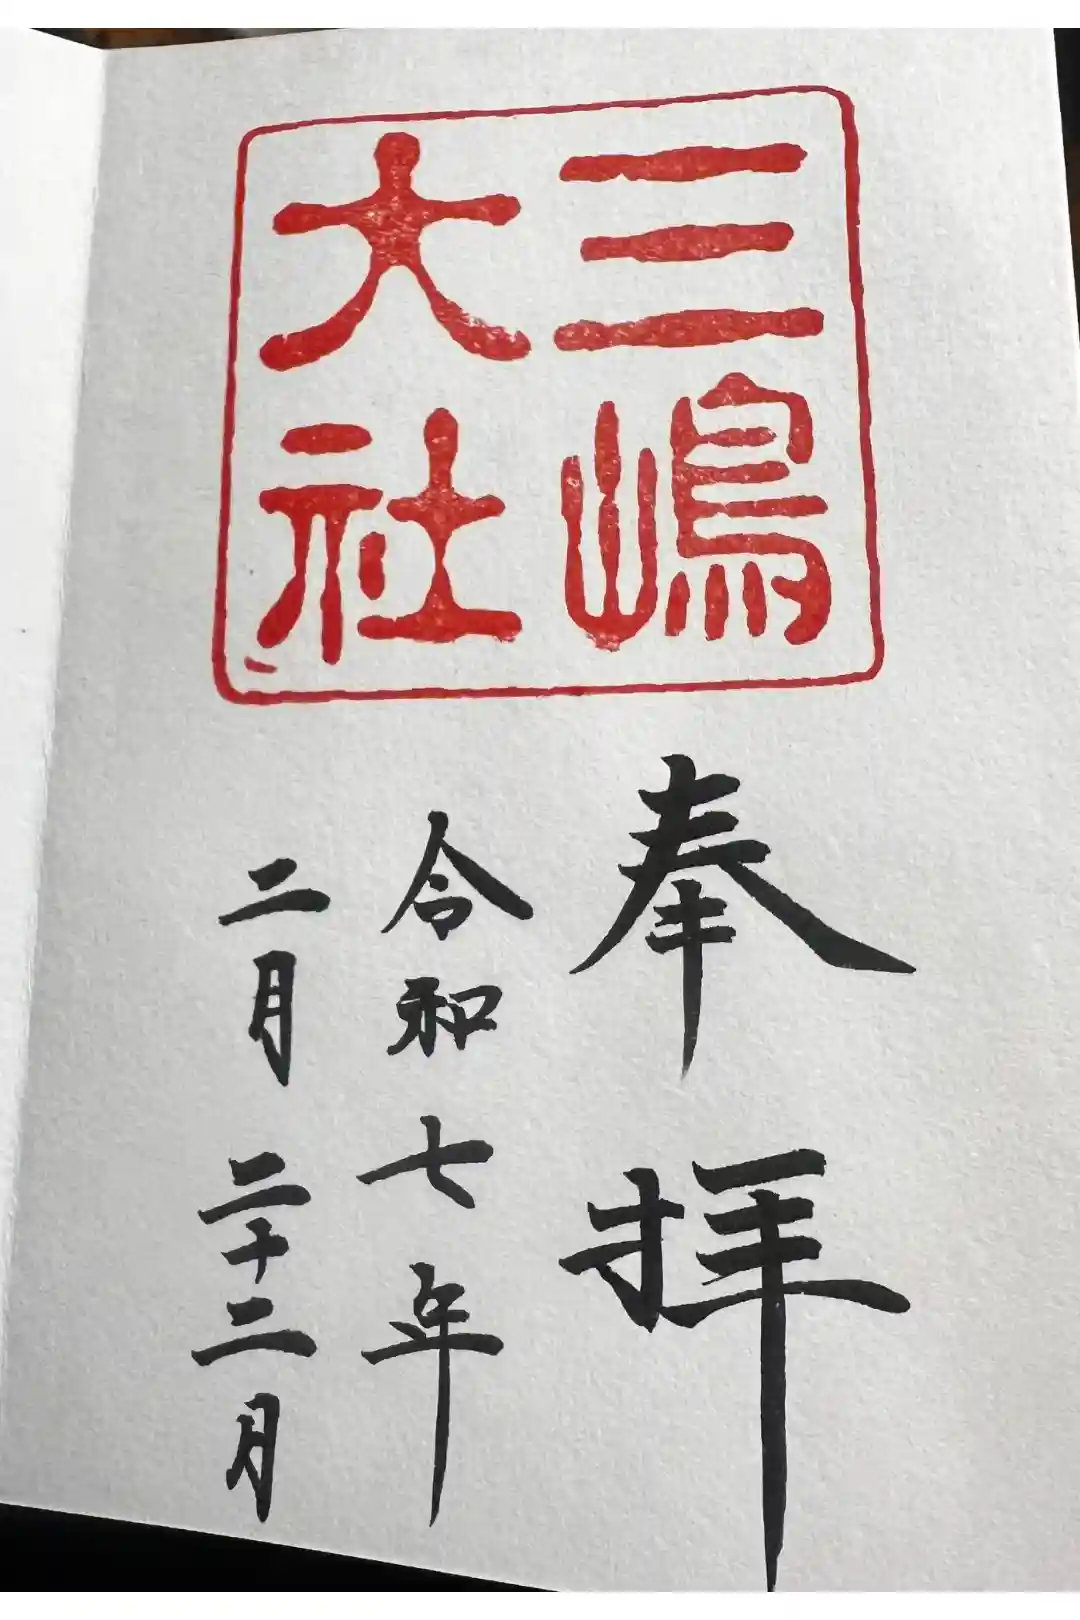 三嶋
大社
奉拝
令和七年
二月二十二月